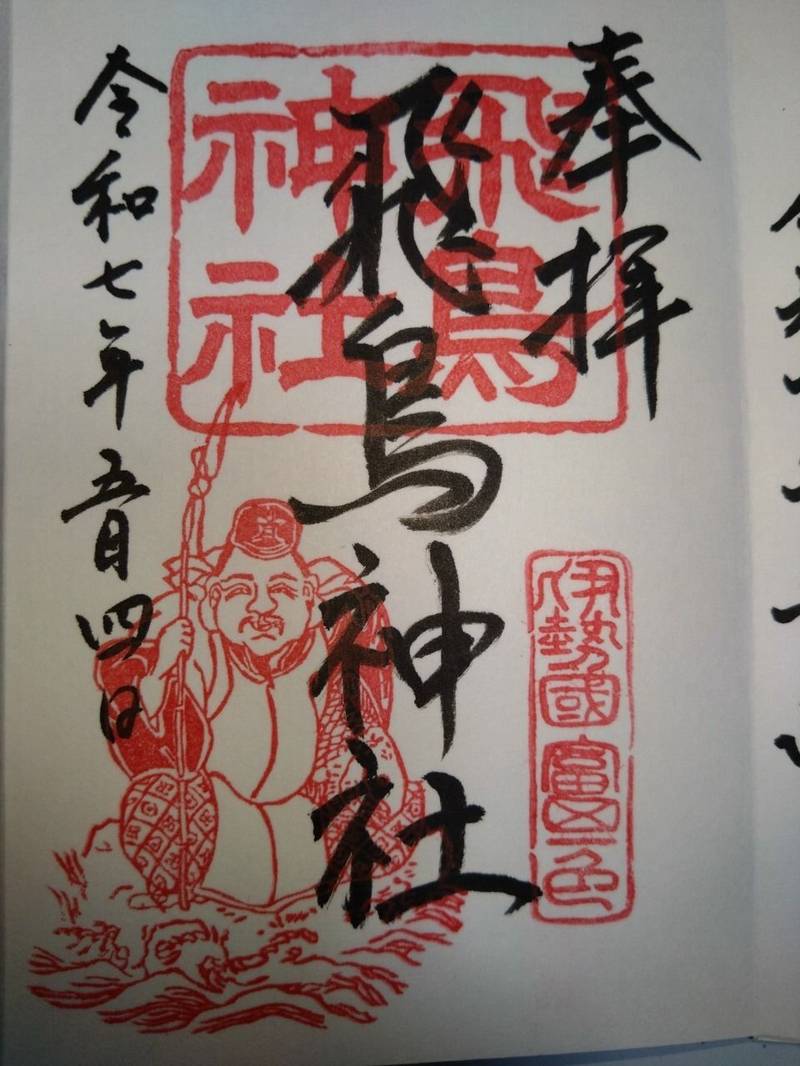 奉拝
飛鳥神社
飛鳥
神社
伊勢國富一色
令和七年五月四日